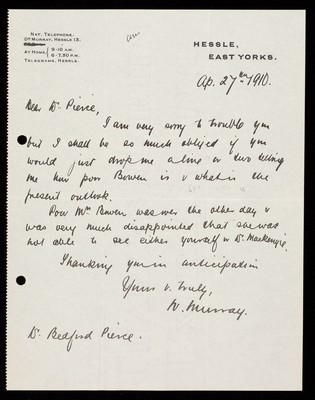 Nat. Telephone.
Dr Murray, Hessle 13.
At Home, 9-10 am.
6-7.30 p.m.
Telegrams, Hessle.
Hessle,
East Yorks.
Ap. 27th 1910.
Dear Dr Pierce,
I am very sorry to trouble you
but I shall be so much obliged if you
would just drop me a line or two telling
me how poor Bowen is & what is the
present outlook.
Poor Mrs Bowen was over the other day &
was very much disappointed that she was
not able to see either yourself or Dr Mackenzie.
Thanking you in anticipation
Yours v. truly,
W. Murray.
Dr Bedford Pierce.